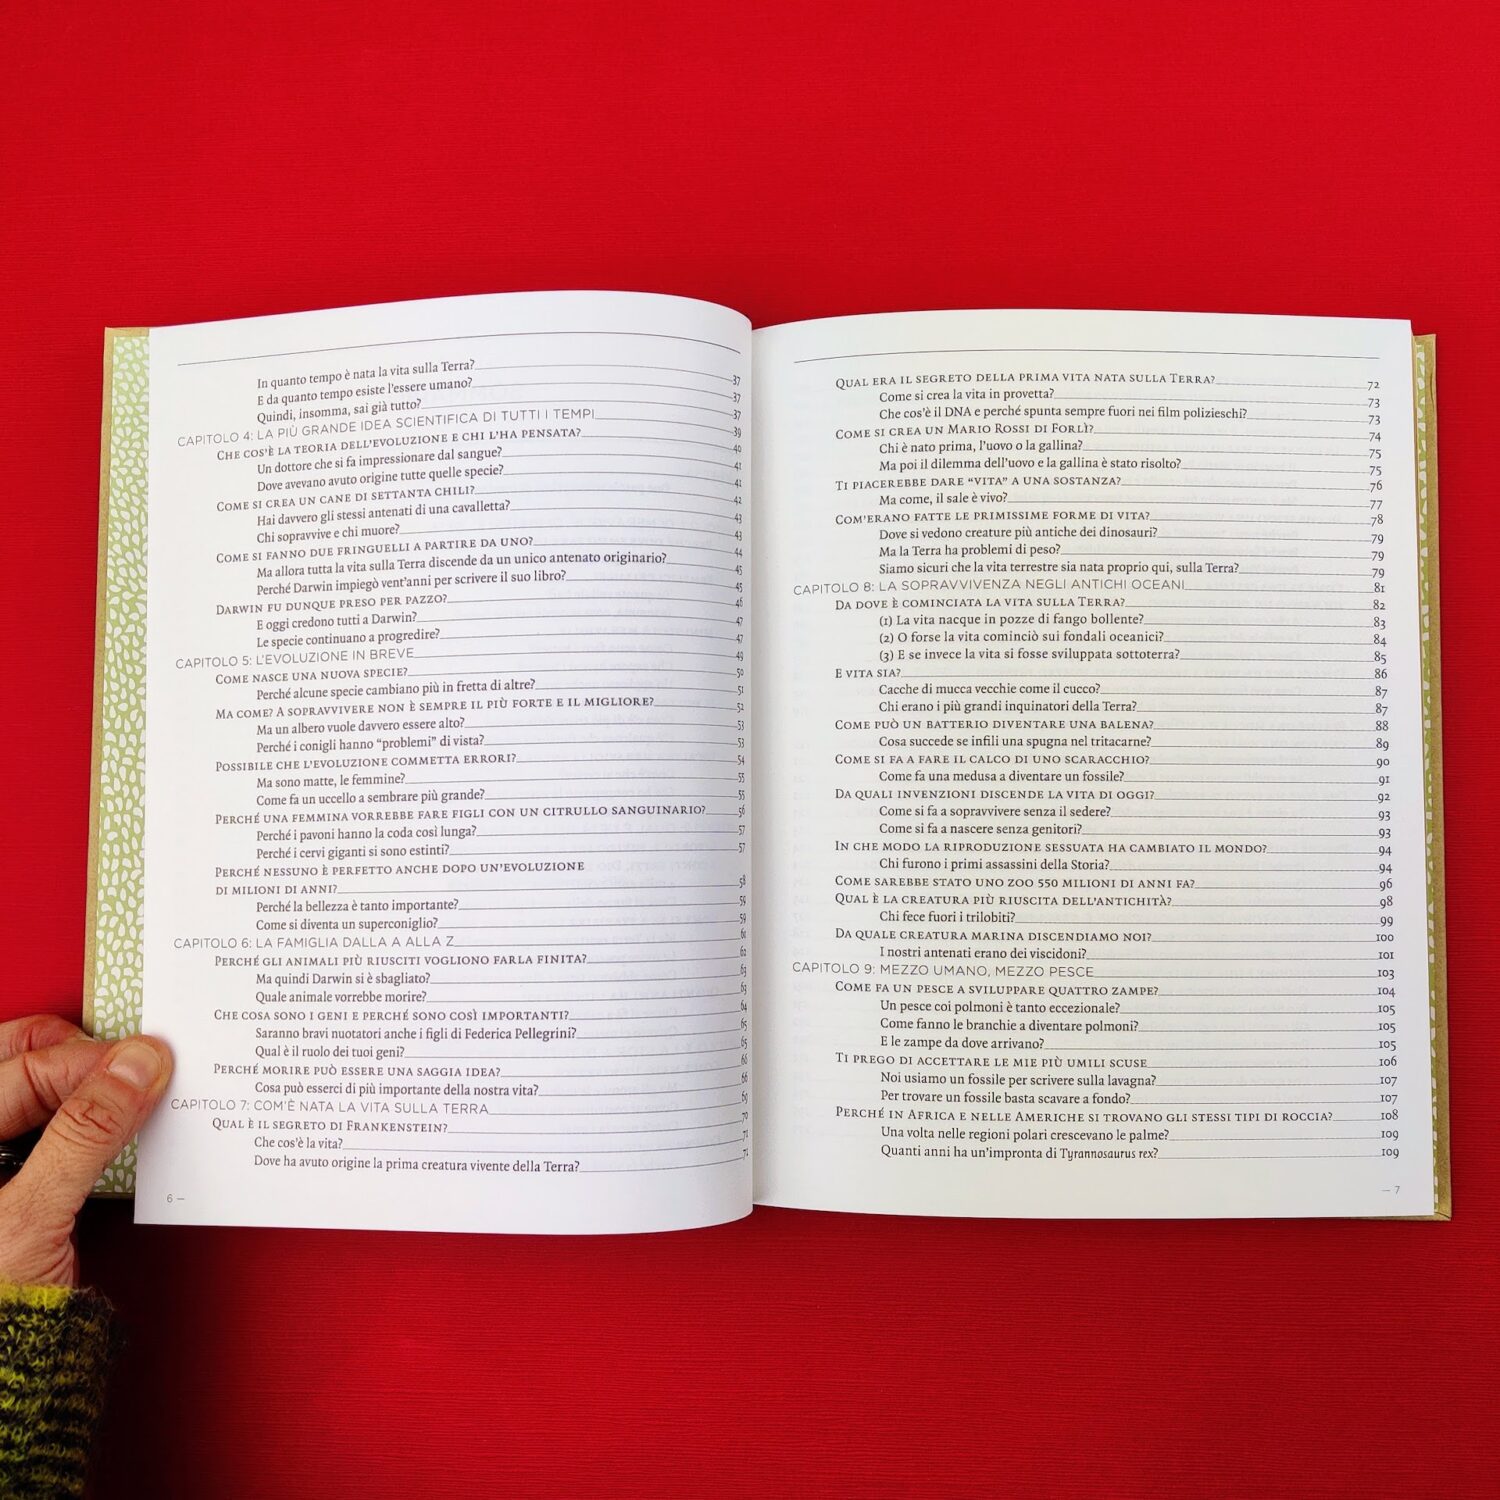 In quanto tempo è nata la vita sulla Terra? 37
E da quanto tempo esiste l'essere umano? 37
Quindi, insomma, sai già tutto? 37
CAPITOLO 4: LA PIÙ GRANDE IDEA SCIENTIFICA DI TUTTI I TEMPI 39
CHE COS'È LA TEORIA DELL'EVOLUZIONE E CHI L'HA PENSATA? 40
Un dottore che si fa impressionare dal sangue? 41
Dove avevano avuto origine tutte quelle specie? 41
COME SI CREA UN CANE DI SETTANTA CHILI? 42
Hai davvero gli stessi antenati di una cavalletta? 43
Chi sopravvive e chi muore? 43
COME SI FANNO DUE FRINGUELLI A PARTIRE DA UNO? 44
Ma allora tutta la vita sulla Terra discende da un unico antenato originario? 45
Perché Darwin impiegò vent'anni per scrivere il suo libro? 45
DARWIN FU DUNQUE PRESO PER PAZZO? 46
E oggi credono tutti a Darwin? 47
Le specie continuano a progredire? 47
CAPITOLO 5: L'EVOLUZIONE IN BREVE 49
COME NASCE UNA NUOVA SPECIE? 50
Perché alcune specie cambiano più in fretta di altre? 51
MA COME? A SOPRAVVIVERE NON È SEMPRE IL PIÙ FORTE E IL MIGLIORE? 52
Ma un albero vuole davvero essere alto? 53
Perché i conigli hanno "problemi" di vista? 53
POSSIBILE CHE L'EVOLUZIONE COMMETTA ERRORI? 54
Ma sono matte, le femmine? 55
Come fa un uccello a sembrare più grande? 55
PERCHÉ UNA FEMMINA VORREBBE FARE FIGLI CON UN CITRULLO SANGUINARIO? 56
Perché i pavoni hanno la coda così lunga? 57
Perché i cervi giganti si sono estinti? 57
PERCHÉ NESSUNO È PERFETTO ANCHE DOPO UN'EVOLUZIONE
DI MILIONI DI ANNI? 58
Perché la bellezza è tanto importante? 59
Come si diventa un superconiglio? 59
CAPITOLO 6: LA FAMIGLIA DALLA A ALLA Z 61
PERCHÉ GLI ANIMALI PIÙ RIUSCITI VOGLIONO FARLA FINITA? 62
Ma quindi Darwin si è sbagliato? 63
Quale animale vorrebbe morire? 63
CHE COSA SONO I GENI E PERCHÉ SONO COSÌ IMPORTANTI? 64
Saranno bravi nuotatori anche i figli di Federica Pellegrini? 65
Qual è il ruolo dei tuoi geni? 65
PERCHÉ MORIRE PUÒ ESSERE UNA SAGGIA IDEA? 66
Cosa può esserci di più importante della nostra vita? 66
CAPITOLO 7: COM'È NATA LA VITA SULLA TERRA 69
QUAL È IL SEGRETO DI FRANKENSTEIN? 70
Che cos'è la vita? 71
Dove ha avuto origine la prima creatura vivente della Terra? 71
6 —
QUAL ERA IL SEGRETO DELLA PRIMA VITA NATA SULLA TERRA? 72
Come si crea la vita in provetta? 73
Che cos'è il DNA e perché spunta sempre fuori nei film polizieschi? 73
COME SI CREA UN MARIO ROSSI DI FORLÌ? 74
Chi è nato prima, l'uovo o la gallina? 75
Ma poi il dilemma dell'uovo e la gallina è stato risolto? 75
TI PIACEREBBE DARE "VITA" A UNA SOSTANZA? 76
Ma come, il sale è vivo? 77
COM'ERANO FATTE LE PRIMISSIME FORME DI VITA? 78
Dove si vedono creature più antiche dei dinosauri? 79
Ma la Terra ha problemi di peso? 79
Siamo sicuri che la vita terrestre sia nata proprio qui, sulla Terra? 79
CAPITOLO 8: LA SOPRAVVIVENZA NEGLI ANTICHI OCEANI 81
DA DOVE È COMINCIATA LA VITA SULLA TERRA? 82
(1) La vita nacque in pozze di fango bollente? 83
(2) O forse la vita cominciò sui fondali oceanici? 84
(3) E se invece la vita si fosse sviluppata sottoterra? 85
E VITA SIA? 86
Cacche di mucca vecchie come il cucco? 87
Chi erano i più grandi inquinatori della Terra? 87
COME PUÒ UN BATTERIO DIVENTARE UNA BALENA? 88
Cosa succede se infili una spugna nel tritacarne? 89
COME SI FA A FARE IL CALCO DI UNO SCARACCHIO? 90
Come fa una medusa a diventare un fossile? 91
DA QUALI INVENZIONI DISCENDE LA VITA DI OGGI? 92
Come si fa a sopravvivere senza il sedere? 93
Come si fa a nascere senza genitori? 93
IN CHE MODO LA RIPRODUZIONE SESSUATA HA CAMBIATO IL MONDO? 94
Chi furono i primi assassini della Storia? 94
COME SAREBBE STATO UNO ZOO 550 MILIONI DI ANNI FA? 96
QUAL È LA CREATURA PIÙ RIUSCITA DELL'ANTICHITÀ? 98
Chi fece fuori i trilobiti? 99
DA QUALE CREATURA MARINA DISCENDIAMO NOI? 100
I nostri antenati erano dei viscidoni? 101
CAPITOLO 9: MEZZO UMANO, MEZZO PESCE 103
COME FA UN PESCE A SVILUPPARE QUATTRO ZAMPE? 104
Un pesce coi polmoni è tanto eccezionale? 105
Come fanno le branchie a diventare polmoni? 105
E le zampe da dove arrivano? 105
TI PREGO DI ACCETTARE LE MIE PIÙ UMILI SCUSE 106
Noi usiamo un fossile per scrivere sulla lavagna? 107
Per trovare un fossile basta scavare a fondo? 107
PERCHÉ IN AFRICA E NELLE AMERICHE SI TROVANO GLI STESSI TIPI DI ROCCIA? 108
Una volta nelle regioni polari crescevano le palme? 109
Quanti anni ha un'impronta di Tyrannosaurus rex? 109
— 7